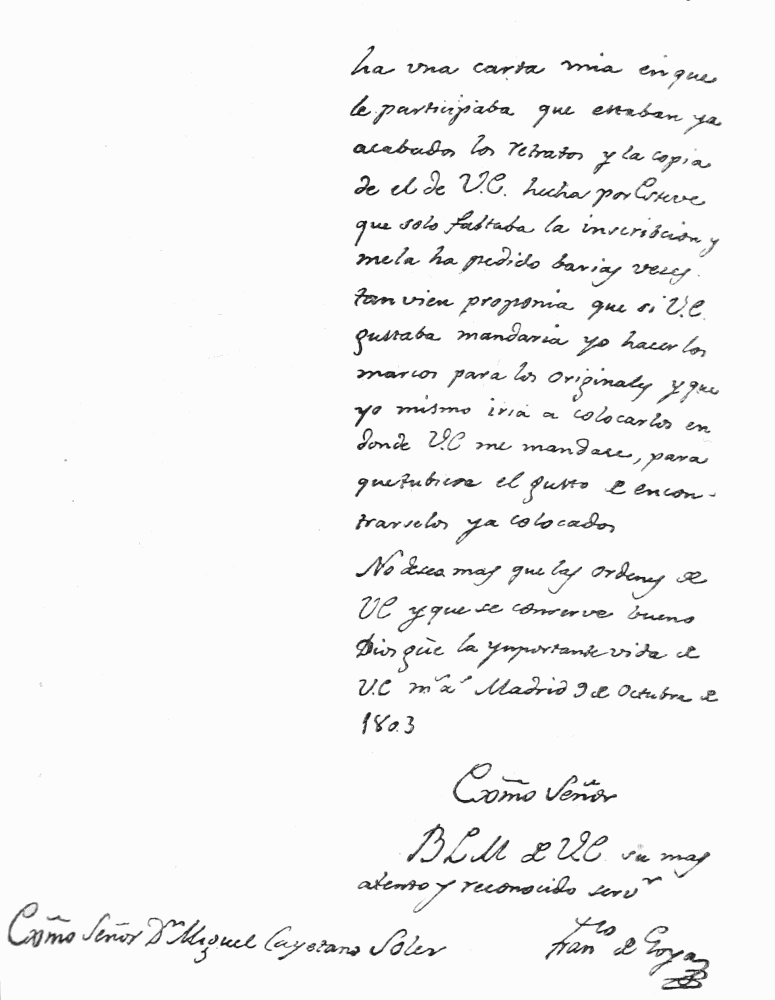 ha vna carta mia en que
le participaba que estaban ya
acabados los retratos y la copia
de el de V.E. hecha por Esteve
que solo faltaba la inscribcion y
mela ha pedido barias veces.
tan vien proponia que si V.E.
gustaba mandaria yo hacer los
marcos para los originales y que
yo mismo iria a colocarlos en
donde V.E me mandase, para
que tubiese el gusto de encon-
trarselos ya colocados
No desea mas que las ordenes de
VE y que se conserve bueno
Dios güe la ymportante vida de
V.E ms as Madrid 9 de Octubre de
1803
Exmo Señor
BLM de VE su mas
atento y reconocido servr
Exmo Señor Dn Miguel Cayetano Soler
Franco de Goya